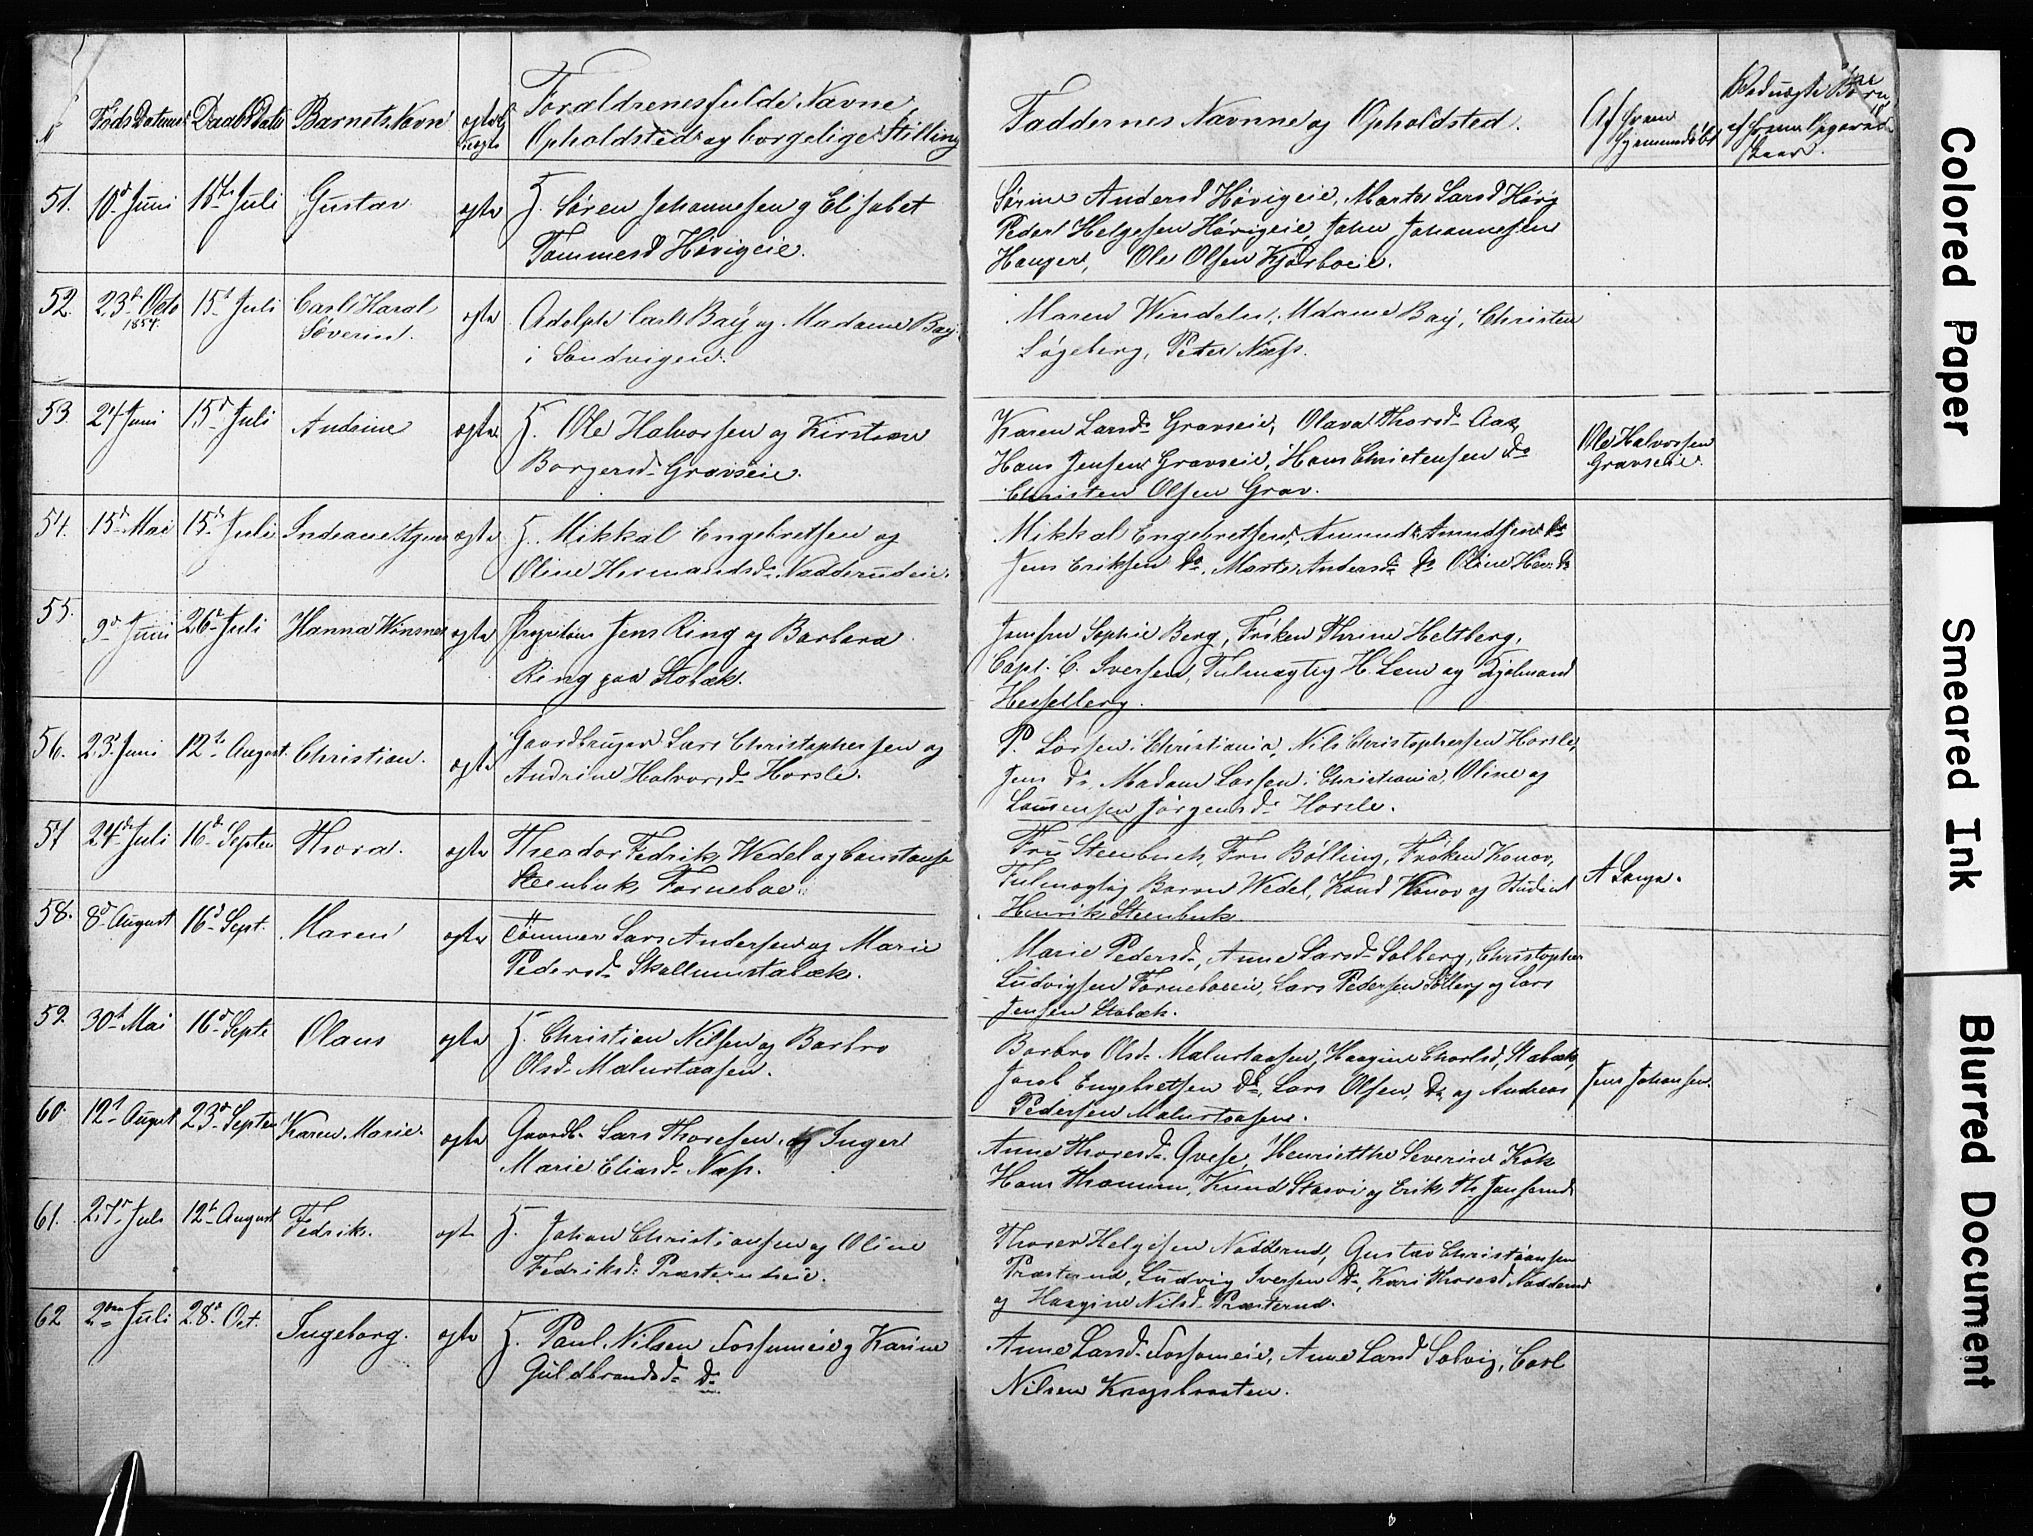 N
Føds Datum
Daabs Datu
Barnets Navn
ægte
uægte
Forældrenes fulde Navne
Opholdsted og borgelige Stilling
Faddernes Navne og Opholdsted.
Af hvem
hjemmedøbt
Ved uægte Børn
af hvem
51. 10d Juni 15de Juli Gustav ægte J. Søren Johannesen og Elisabet
Tommesd Høvigeie.
Sørine Andersd Høvigeie, Marte Larsd Høvig
Peder Helgesen Høvigeie, John Johannesen
Hauger, Ole Olsen Kjørboeie.
52. 23d Octo 1854. 15d Juli Carl Haral
Severin. ægte Adolph Carl Bay og Madame Bay
i Sandvigen.
Maren Windelu, Mdame Bay, Christen
Løgeberg, Peter Næss.
53. 24 Juni 15d Juli Andrine ægte J. Ole Halvorsen og Kirstine
Borgersd. Gravseie.
Karen Larsd. Gravseie, Olava Thorsd. Aas,
Hans Jensen Gravseie, Hans Christensen Do
Christen Olsen Grav.
Ole Halvorsen
Gravseie.
54. 15d Mai 15d Juli Indiane Agnes ægte J. Mikkal Engebretsen og
Oline Hermandsd. Nadderudeie.
Mikkal Engebretsen, Amund Amundsen Do
Jens Eriksen Do, Marte Andersd. Do Oline Her. D
55. 9d Juni 26d Juli Hanna Wonsnes ægte Proprietær Jens Ring og Barbara
Ring paa Stabæk.
Jomfru Sophie Berg, Frøken Thrine Heltberg,
Capt. C. Iversen, Fulmægtig H. Lem og Kjøbmand
Hesselberg.
56. 23d Juni 12te August. Christian. ægte Gaardbruger Lars Christophersen og
Andrine Halvorsd. Horsle.
P. Larsen i Christiania, Nils Christophersen Horsle,
Jens Do, Madam Larsen i Christiania, Oline og
Jørgensd. Horsle.
57 24de Juli 16d Septem Thora. ægte Theodor Fedrik Wedel og Constanse
Steenbuk Forneboe.
Fru Steenbuch, Fru Bølling, Frøken Konov,
Fulmægtig Baron Wedel, Kand Konov og Student
Henrik Steenbuk
A Lange.
58. 8d August 16d Sept. Maren ægte Tømmer Lars Andersen og Marie
Pedersd. Skallumstabæk.
Marie Pedersd., Anne Larsd. Solberg, Christopher
Ludvigsen Forneboeeie, Lars Pedersen Solberg og Lars
Jensen Stabæk.
59. 30d Mai 16d Septe Olaus ægte J. Christian Nilsen og Barbro
Olsd. Malurtaasen.
Barbro Olsd. Malurtaasen, Haagine Charlsd, Stabæk,
Jacob Engebretsen Do, Lars Olsen, Do og Andreas
Pedersen Malurtaasen.
Jens Johansen.
60. 12t August 23d Septem Karen Marie. ægte Gaardb. Lars Thoresen og Inger
Marie Eliasd. Næss.
Anne Thoresd. Gvese, Henriette Severine Kok
Hans Thommesen, Knud Staavi og Erik Th. Jonsrud
61. 27d Juli 12t August Fedrik. ægte J. Johan Christiansen og Oline
Fedriksd. Præsterudeie.
Thorer Helgesen Nadderud, Gustav Christiansen
Præsterud, Ludvig Iversen Do, Kari Thoresd Nadderud
og Haagine Nilsd. Præsterud.
62 2den Juli 28d Oct. Ingeborg. ægte J. Paul Nilsen Fossumeie og Karine
Guldbrandsd. Do
Anne Larsd. Fossumeie, Anne Larsd Solvig, Carl
Nilsen Krogsbraaten.
Colored Paper
Smeared Ink
Blurred Document